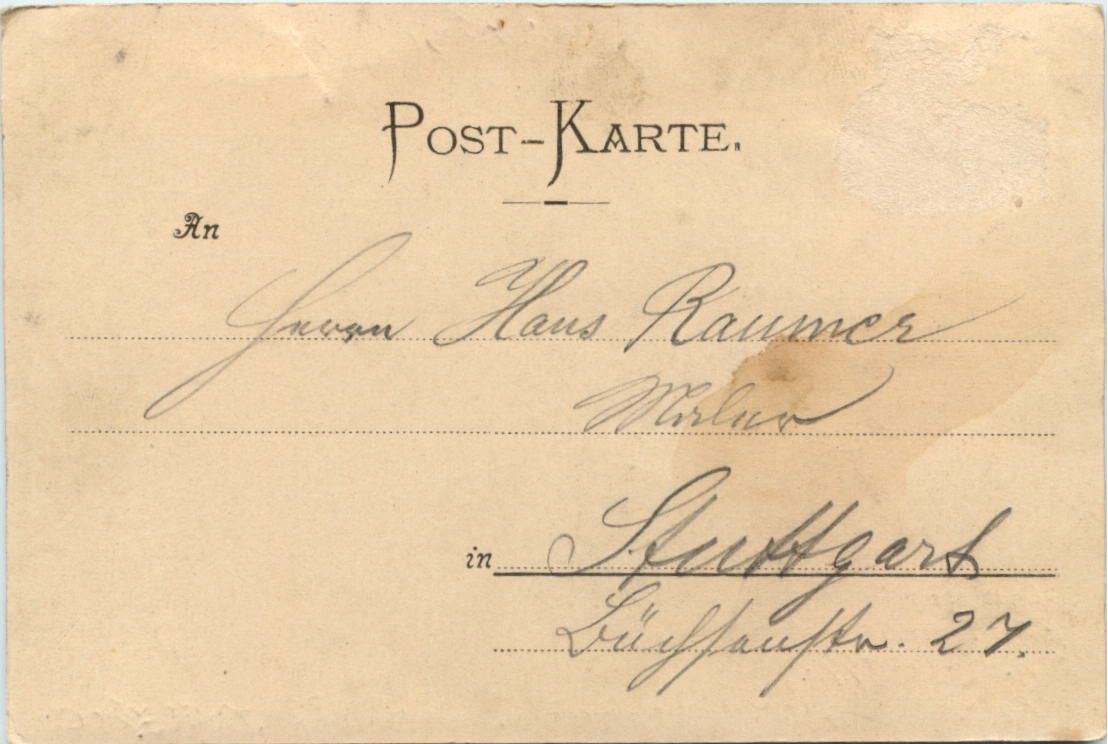 POST-KARTE.
An
Herrn Hans Raumer
Maler
in Stuttgart
Büchsenstr. 27.